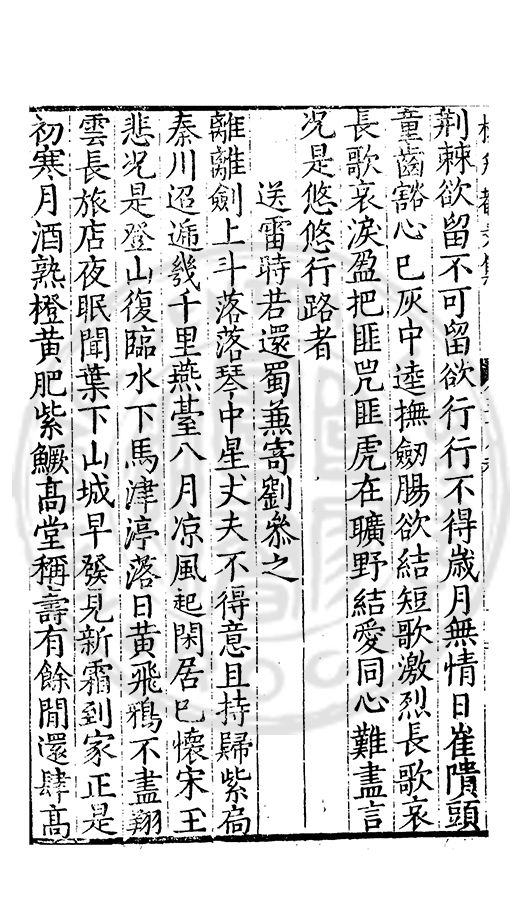 荆棘欲留不可留欲行行不得歲月無情日崔隤頭
童齒豁心已灰中逵撫劒腸欲結短歌激烈長歌哀
長歌哀淚盈把匪兕匪虎在曠野結愛同心難盡言
况是悠悠行路者
送雷時若還蜀兼寄劉叅之
離離劍上斗落落琴中星丈夫不得意且持歸紫扃
秦川迢遞幾千里燕臺八月凉風起閑居已懷宋王
悲况是登山復臨水下馬津渟落日黃飛鴉不盡翔
雲長旅店夜眠聞葉下山城早發見新霜到家正是
初寒月酒熟橙黃肥紫鱖高堂稱壽有餘閒還肆高